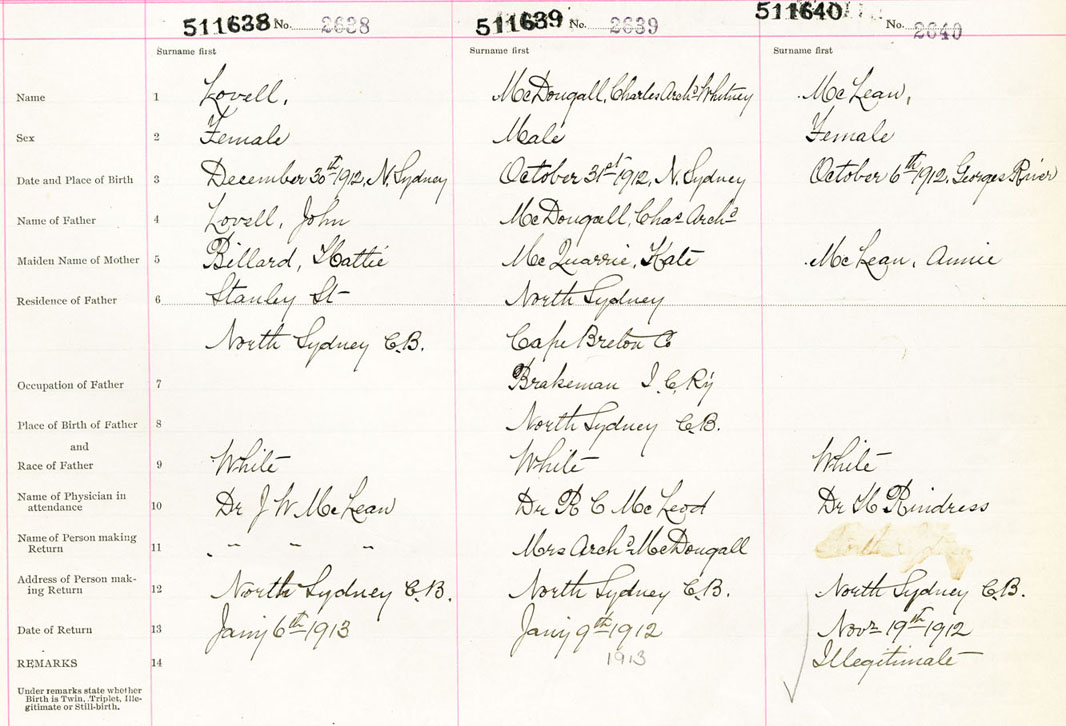 511638 No. 2638 511639 No. 2639 511640 No. 2640
Surname first Surname first Surname first
Name 1 Lovell, McDougall, Charles Archd Whitney McLean,
Sex 2 Female Male Female
Date and Place of Birth 3 December 30th 1912, N. Sydney October 31st 1912, N. Sydney October 6th 1912, Georges River
Name of Father 4 Lovell, John McDougall, Chas Archd
Maiden Name of Mother 5 Billard, Hattie McQuarrie, Kate McLean, Annie
Residence of Father 6 Stanley St North Sydney
North Sydney C.B. Cape Breton Co
Occupation of Father 7 Brakeman I.C.Ry
Place of Birth of Father 8 North Sydney C.B.
and
Race of Father 9 White White White
Name of Physician in
attendance 10 Dr J W McLean Dr R C McLeod Dr H Rindress
Name of Person making
Return 11 " " " " Mrs Archd McDougall
Address of Person mak-
ing Return 12 North Sydney C.B. North Sydney C.B. North Sydney C.B.
Date of Return 13 Jany 6th 1913 Jany 9th 1912 Novr 19th 1912
1913
REMARKS 14 Illegitimate
Under remarks state whether
Birth is Twin, Triplet, Ille-
gitimate or Still-birth.